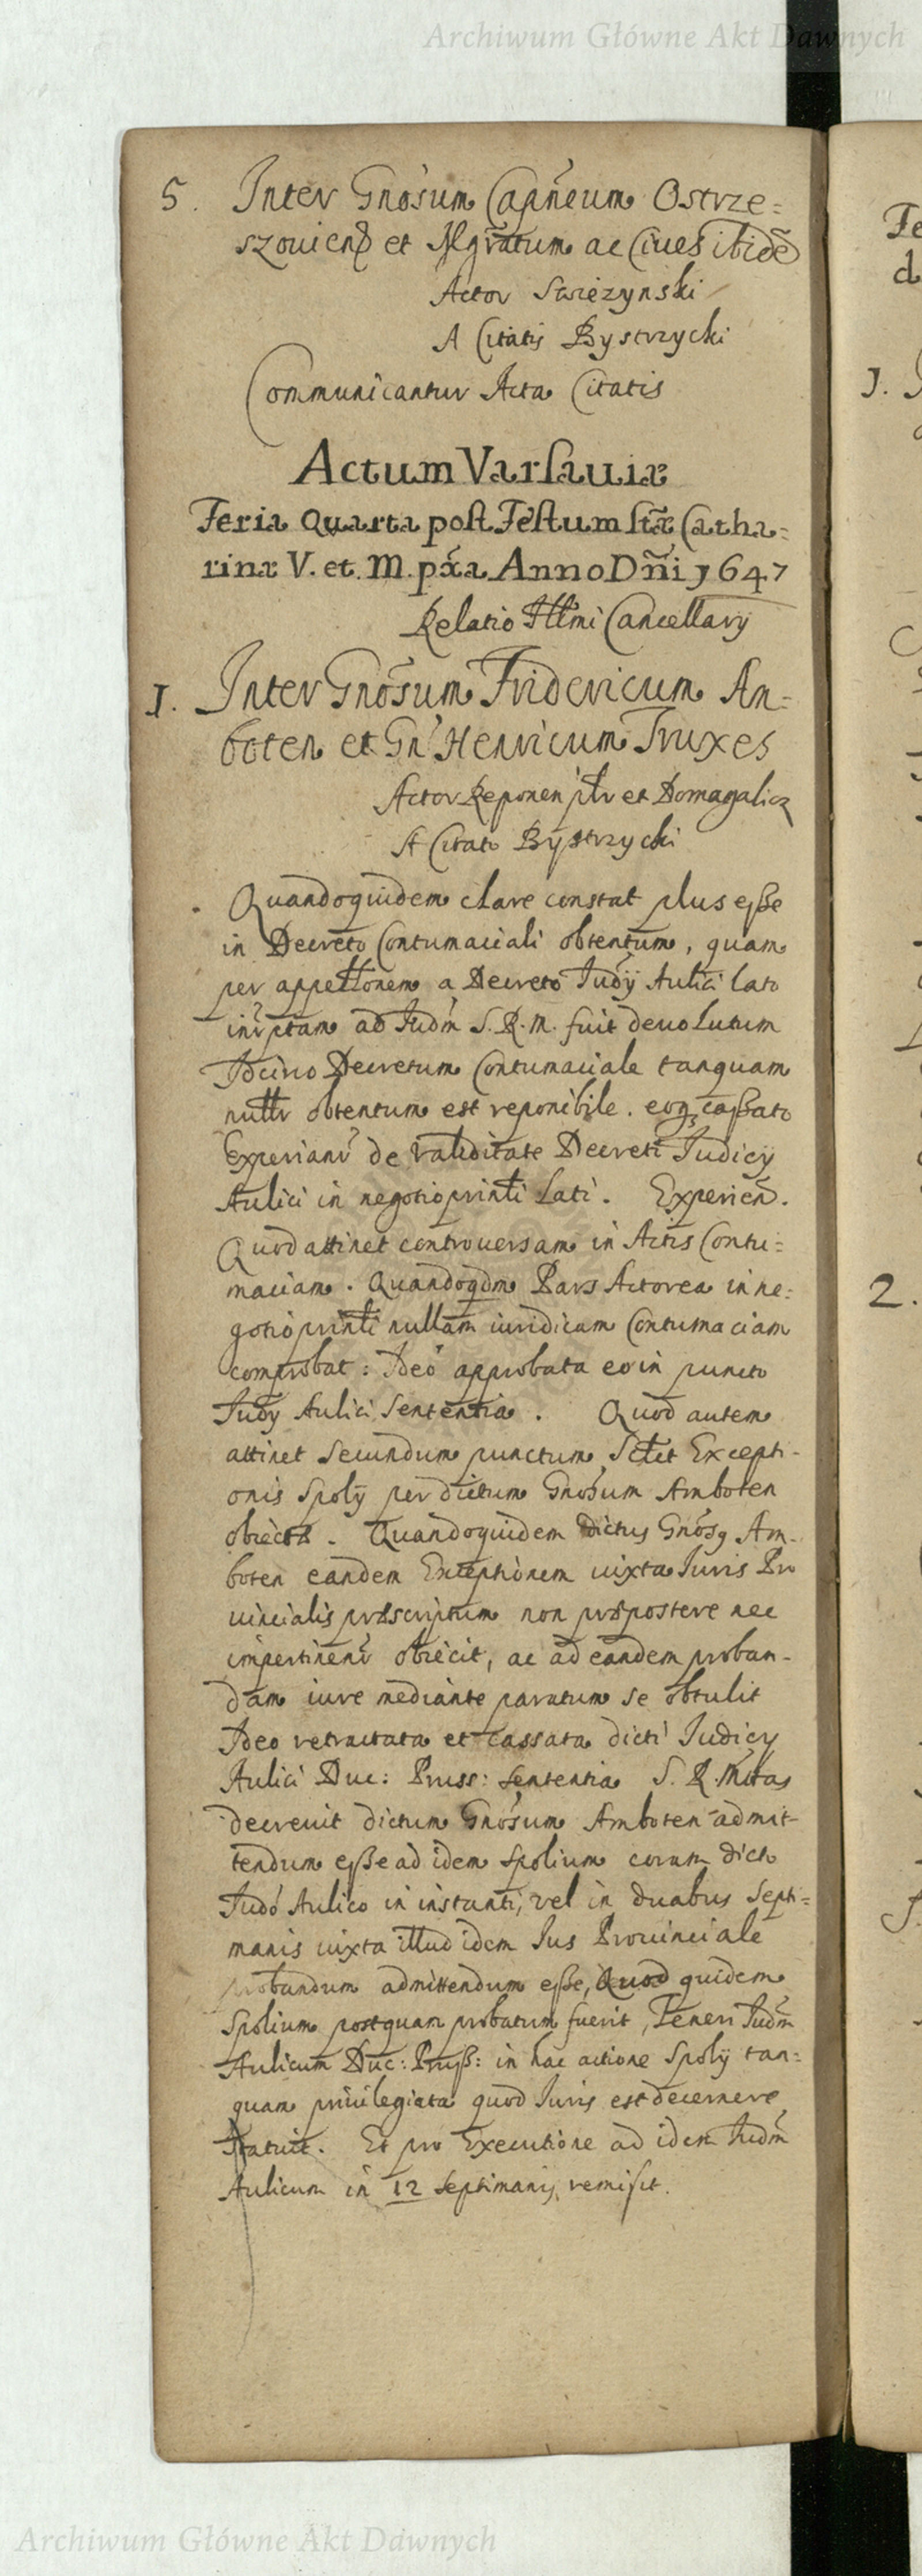 Archiwum Główne Akt Dawnych
5. Inter Gnosum Capneum Ostrze=
szouiens et Mgratum ac Ciues ibidē
Actor Swiezynski
A Citatis Bystrzycki
Communicantur Acta Citatis
Actum Varsauiæ
Feria Quarta post Festum stæ Catha=
rinæ V. et M. pxa Anno Dñi 1647
Relatio Illmi Cancellarij
1. Inter Gnosum Fridericum Am=
boten et Gn Henricum Truxes
Actor Reponen ptr et Domagalicz
A Citato Bystrzycki
Quandoquidem clare constat plus esse
in Decreto Contumaciali obtentum, quam
per appellonem a Decreto Judij Aulici lato
ad Judm S. R. M. fuit deuolutum
Ideirco Decretum Contumaciale tanquam
nullr obtentum est reponibile. eoq cassato
Experianr de validitate Decreti Judicij
Aulici in negotio printi Lati. Experien̄.
Quod attinet controuersam in Actis Contu=
maciam. Quandoqdm Pars Actorea in ne=
gotio printi nullam iuridicam Contumaciam
comprobat: Ideo approbata eo in puncto
Judij Aulici Sententia. Quod autem
attinet secundum punctum Sctet Excepti-
onis Spolij per dictum Gnosum Amboten
obiectæ. Quandoquidem dictus Gnosq Am-
boten eandem Exceptionem iuxta Iuris Pro
uincialis præscriptum non præpostere nec
impertinenr obiecit, ac ad eandem proban-
dam iure mediante paratum se obtulit
Ideo retractata et cassata dicti Judicij
Aulici Duc: Pruss: sententia S. R. Mtas
decreuit dictum Gnosum Amboten admit-
tendum esse ad idem spolium coram dicto
Judo Aulico in instanti, vel in duabus Septi=
manis iuxta illud idem Ius Prouinciale
probandum admittendum esse, Quod quidem
Spolium postquam probatum fuerit, Teneri Judm
Aulicum Duc: Pruss: in hac actione Spolij tan=
quam priuilegiata quod Iuris est decernere
statuit. Et pro Executione ad idem Judm
Aulicum in 12 septimanis remisit.
Fe
d
1.
2.
Archiwum Główne Akt Dawnych